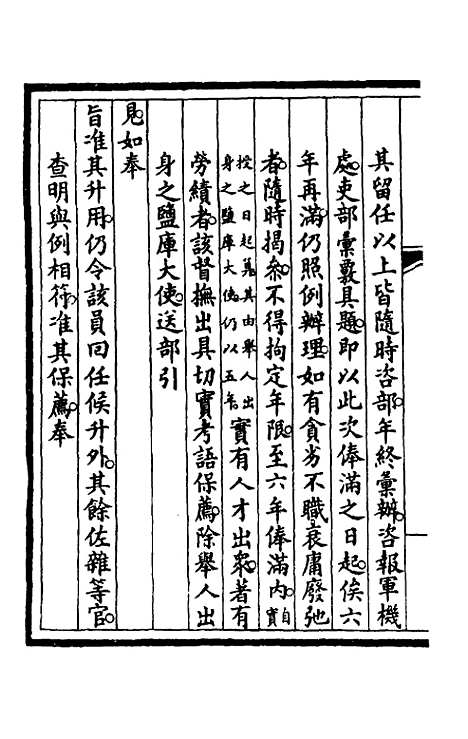 其留任以上皆隨時咨部。年終彙辦。咨報軍機
處。吏部彙覈具題。即以此次俸滿之日起。俟六
年再滿。仍照例辦理。如有貪劣不職衰庸廢弛
者。隨時揭參。不得拘定年限。至六年俸滿內。自實
授之日起算其由舉人出身之鹽庫大使仍以五年。實有人才出衆。著有
勞績者。該督撫出具切實考語保薦。除舉人出
身之鹽庫大使。送部引
見。如奉
旨准其升用。仍令該員回任候升外。其餘佐雜等官。
查明與例相符。准其保薦。奉